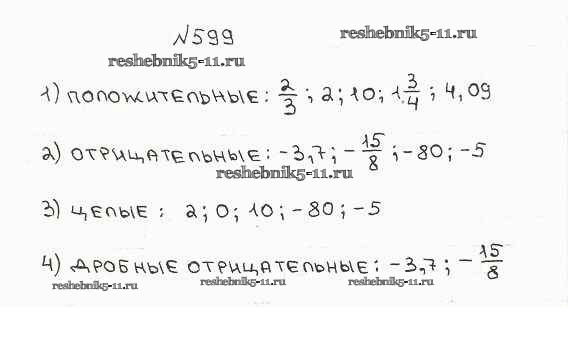 №599
reshebnik5-11.ru
reshebnik5-11.ru
1) ПОЛОЖИТЕЛЬНЫЕ: 2/3; 2; 10; 1 3/4; 4,09
2) ОТРИЦАТЕЛЬНЫЕ: -3,7; -15/8; -80; -5
reshebnik5-11.ru
3) ЦЕЛЫЕ: 2; 0; 10; -80; -5
4) ДРОБНЫЕ ОТРИЦАТЕЛЬНЫЕ: -3,7; -15/8
reshebnik5-11.ru reshebnik5-11.ru reshebnik5-11.ru